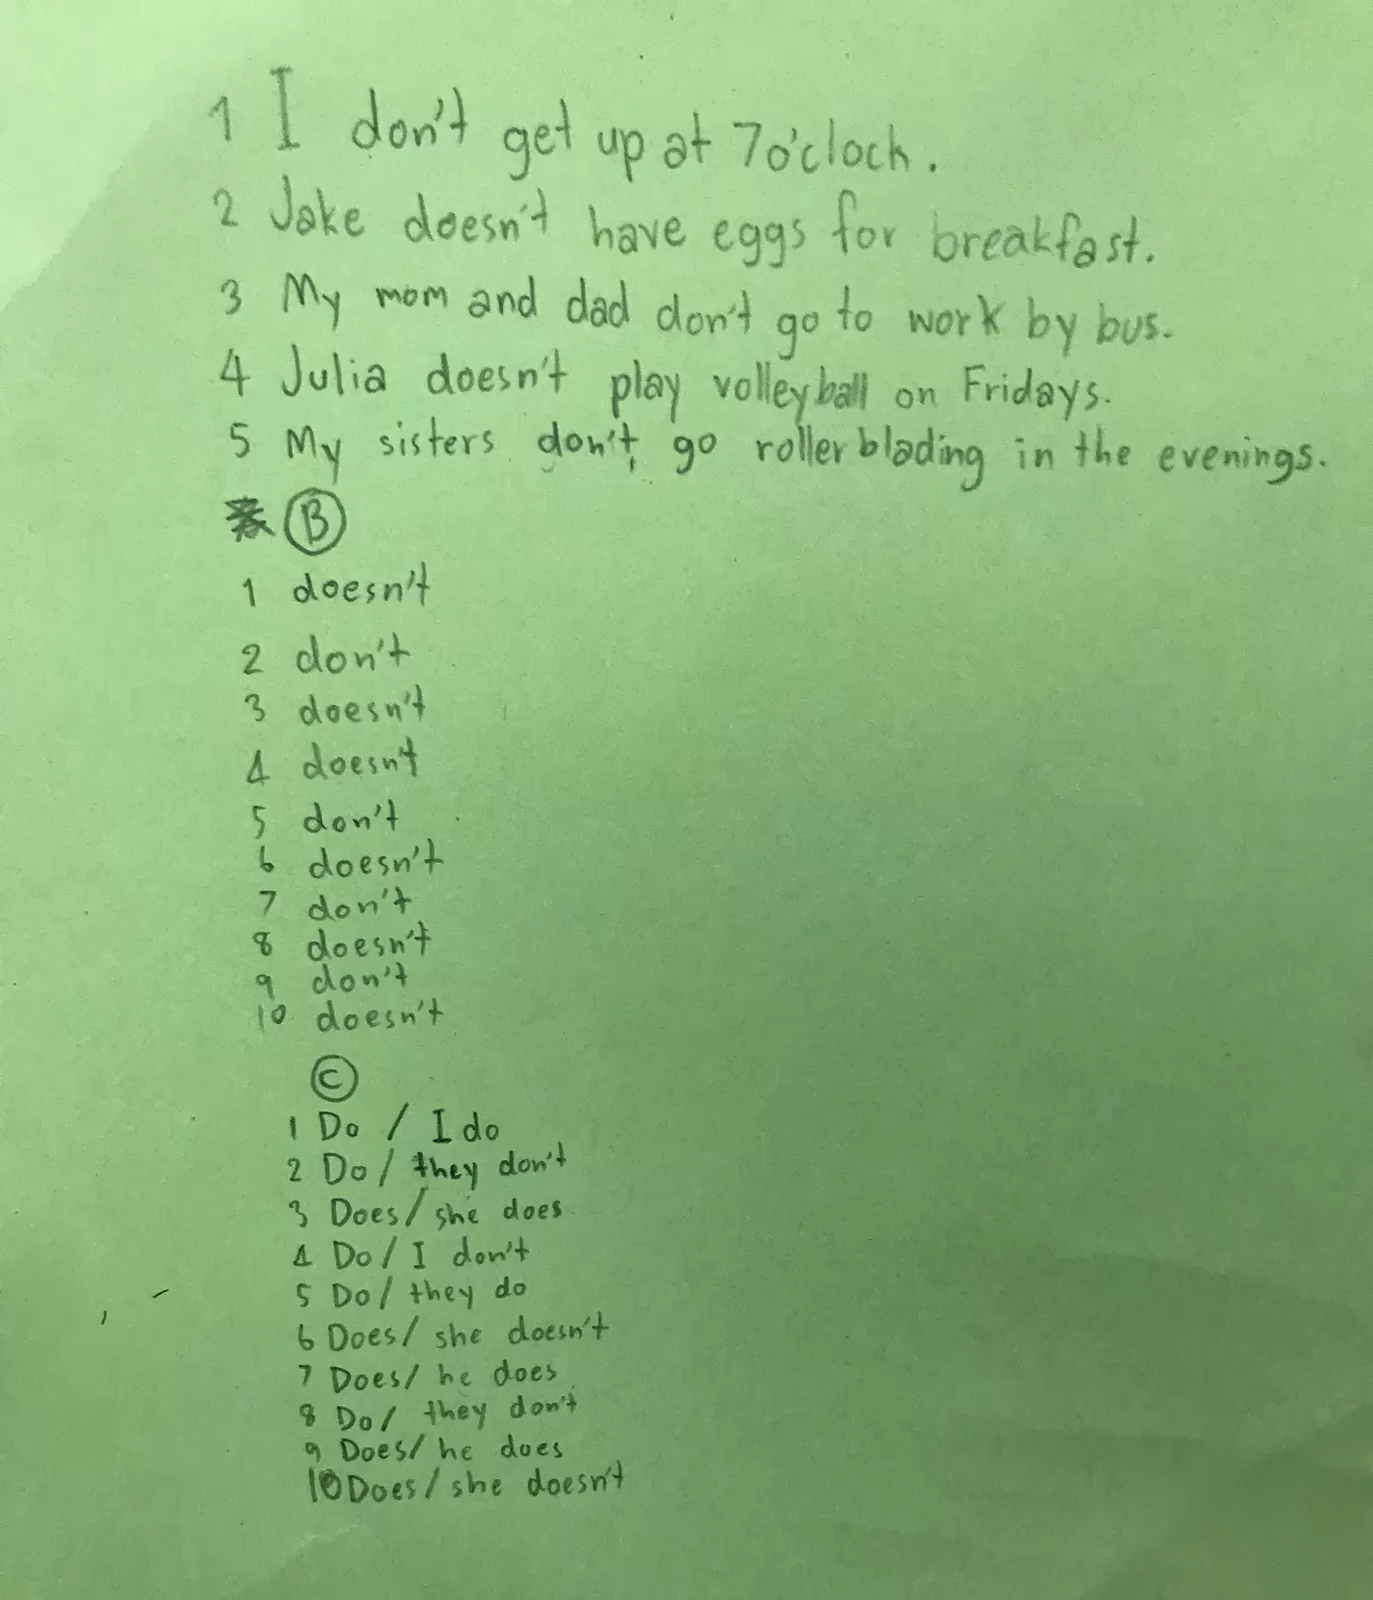 1 I don't get up at 7 o'clock.
2 Jake doesn't have eggs for breakfast.
3 My mom and dad don't go to work by bus.
4 Julia doesn't play volleyball on Fridays.
5 My sisters don't go rollerblading in the evenings.
B
1 doesn't
2 don't
3 doesn't
4 doesn't
5 don't
6 doesn't
7 don't
8 doesn't
9 don't
10 doesn't
C
1 Do / I do
2 Do / they don't
3 Does / she does
4 Do / I don't
5 Do / they do
6 Does / she doesn't
7 Does / he does
8 Do / they don't
9 Does / he does
10 Does / she doesn't